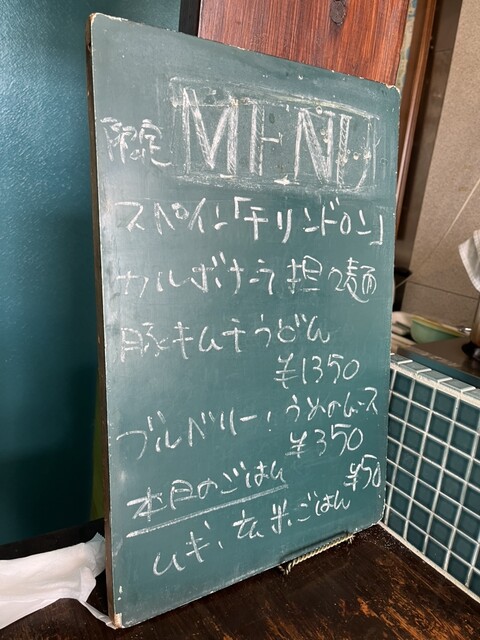 限定 MENU
スペイン「チリンドロン」
カルボナーラ担々麺
豚キムチうどん
¥1350
ブルベリー!うめのムース
¥350
本日のごはん ¥50
ムギ、玄米ごはん